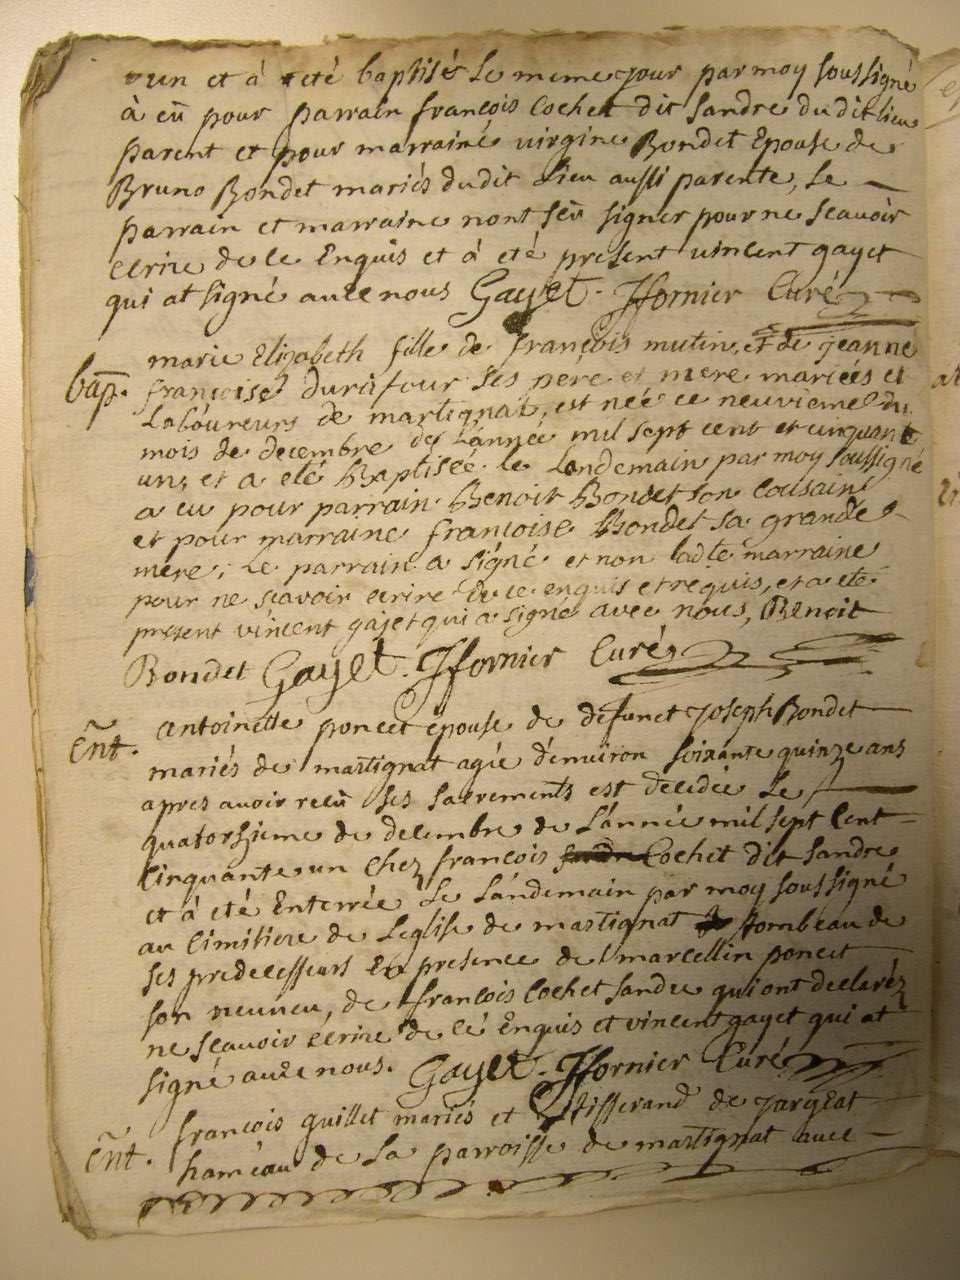 un et à eté baptisé le meme jour par moy soussigné
à eû pour parrain françois Cochet dit Sandre du dit lieu
parent et pour marraine virgine Bondet Epouse de
Bruno Bondet mariés dudit lieu aussi parente, le
parrain et marraine nont sçû signer pour ne scavoir
ecrire de ce Enquis et à eté present vincent gayet
qui at signé avec nous Gayet. Jfornier Curé
bap. marie Elizabeth fille de françois mutin, et de jeanne
françoise durafour ses pere et mere mariées et
Laboureurs de martignat, est née ce neuvieme du
mois de decembre de L'année mil sept cent et cinquante
un, et a eté Baptisée le Lendemain par moy soussigné
a eu pour parrain Benoit Bondet son cousain
et pour marraine françoise Bondet sa grande
mere; Le parrain a signé et non ladte marraine
pour ne scavoir ecrire de ce enquis et requis, et a eté
present vincent gajet qui a signé avec nous, Benoit
Bondet Gayet. Jfornier Curé
Ent. antoinette poncet epouse de defunct joseph Bondet
mariés de martignat agée d'environ soixante quinze ans
apres avoir reçû ses sacrements est decedée le
quatorzieme de decembre de L'année mil sept Cent
Cinquante un Chez francois Cochet dit Sandre
et à eté Enterrée Le Landemain par moy soussigné
au Cimitiere de Leglise de martignat tombeau de
ses predecesseurs En presence de marcellin poncet
son neuveu, de françois Cochet Sandre qui ont declarés
ne scavoir ecrire de cé Enquis et vincent gayet qui at
signé avec nous. Gayet. Jfornier Curé
Ent. françois guillet mariés et tisserand de jargeat
haméau de La parroisse de martignat avec